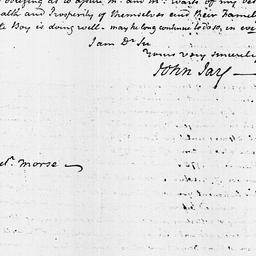 obliging as to assure Mr. and Mrs. Waits of my be
ealth and Prosperity of themselves and their Famil
le Boy is doing well— may he long continue to do so, in ev
I am Dr Sir
Yours very sincerely
John Jay —
Morse —